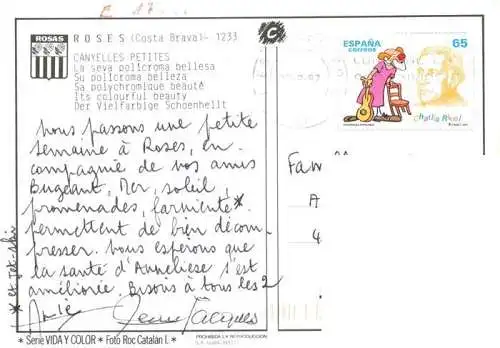 ROSAS
ROSES (Costa Brava)- 1233
CANYELLES PETITES
La seva policroma bellesa
Su policroma belleza
Sa polychromique beauté
Its colourful beauty
Der Vielfarbige Schoenhellt
Nous passons une petite
semaine à Roses, en
compagnie de vos amis
Bugeant. Mer, soleil,
promenades, farniente*
permettent de bien décom-
presser. Nous espérons que
la santé d'Anneliese s'est
améliorée. Bisous à tous les 2
Jean Jacques
* et Jet-ski
* Serie VIDA Y COLOR * Foto Roc Catalan I. *
PROHIBIDA LA REPRODUCCION
ESPAÑA
CORREOS
65
Charlie Rivel
Fam
A
4